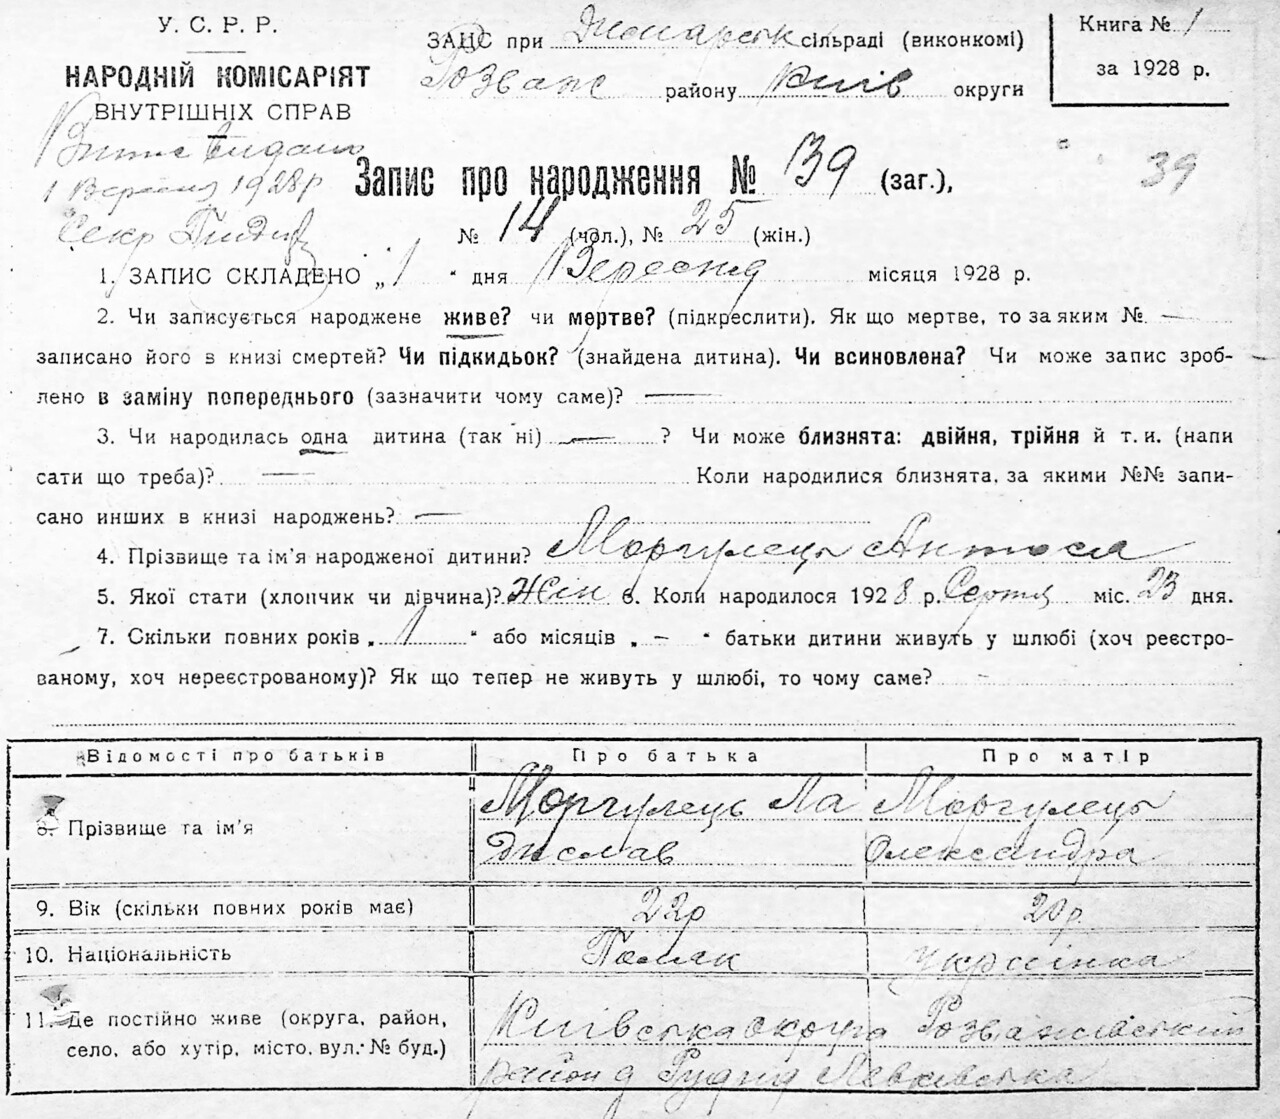 У. С. Р. Р.
НАРОДНІЙ КОМІСАРІЯТ
ВНУТРІШНІХ СПРАВ
ЗАГС при сільраді (виконкомі)
Розваж району Київ округи
Книга № 1
за 1928 р.
видано
1 Вересня 1928р
Секр
Запис про народження № 39 (заг.),
39
№ 14 (чол.), № 25 (жін.)
1. ЗАПИС СКЛАДЕНО „1" дня Вересня місяця 1928 р.
2. Чи записується народжене живе? чи мертве? (підкреслити). Як що мертве, то за яким № —
записано його в книзі смертей? Чи підкидьок? (знайдена дитина). Чи всиновлена? Чи може запис зроб-
лено в заміну попереднього (зазначити чому саме)? —
3. Чи народилась одна дитина (так ні) — ? Чи може близнята: двійня, трійня й т. и. (напи
сати що треба)? — Коли народилися близнята, за якими №№ запи-
сано инших в книзі народжень? —
4. Прізвище та ім'я народженої дитини? Моргулець Антося
5. Якої стати (хлопчик чи дівчина)? Жін 6. Коли народилося 1928 р. Серпня міс. 23 дня.
7. Скільки повних років „1" або місяців „ — " батьки дитини живуть у шлюбі (хоч реєстро-
ваному, хоч нереєстрованому)? Як що тепер не живуть у шлюбі, то чому саме? –
Відомості про батьків Про батька Про матір
8. Прізвище та ім'я Моргулець Ла Моргулець
дислав Олександра
9. Вік (скільки повних років має) 22р 20р.
10. Національність Поляк Українка
11. Де постійно живе (округа, район, Київська округа Розважівський
село, або хутір, місто, вул. № буд.) район д Рудня Левківська